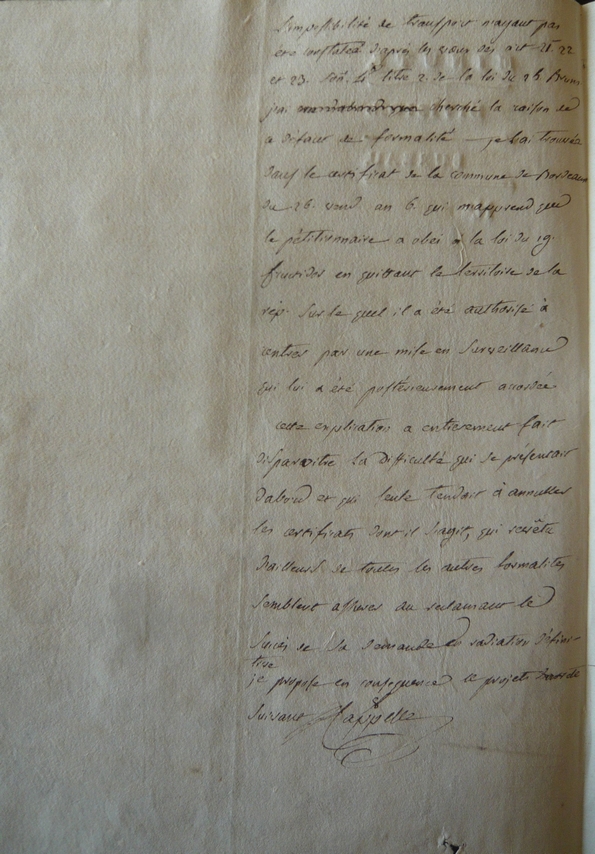 l'impossibilité de transport n'ayant pas
été constatée d'après les vœux des art 21. 22
et 23. son. 4e titre 2. de la loi du 26 Brum
j'ai cherché la raison de
a défaut de formalité — je l'ai trouvée
dans le certificat de la commune de Bordeaux
du 26. vend. an 6. qui m'apprend que
le pétitionnaire a obei à la loi du 19.
fructidor en quittant le territoire de la
rep. sur le quel il a été authorisé à
rentrer par une mise en surveillance
qui lui a été postérieusement accordée
cette explication a entierement fait
disparoitre la difficulté qui se présentait
d'abord et qui seule tendait à annuller
les certificats dont il s'agit, qui revêtu
d'ailleurs de toutes les autres formalités
semblent assurer au reclamant le
succès de sa demande en radiation défini-
tive
je propose en conséquence le projet d'arrêté
suivant